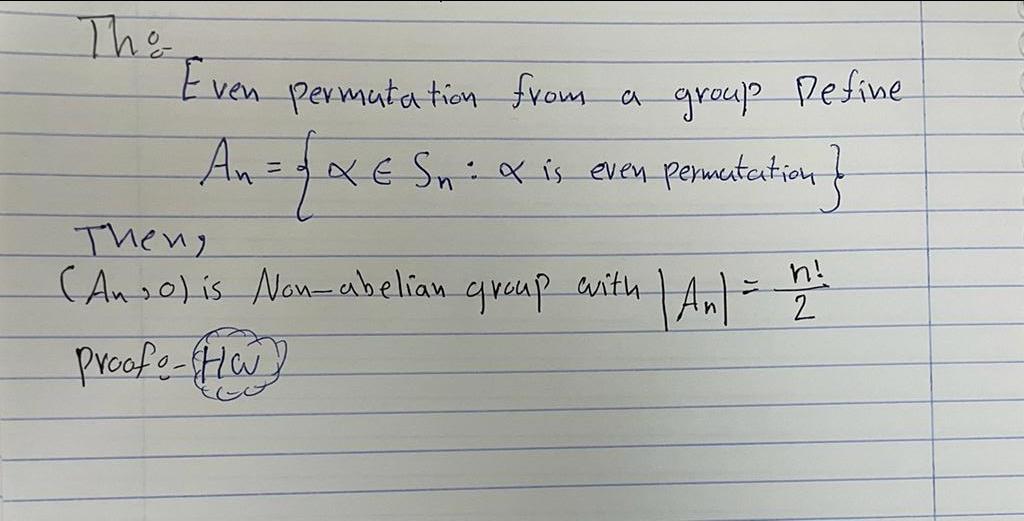 Th:-
Even permutation from a group Define
An = { α ∈ Sn : α is even permutation }
Then,
(An, o) is Non-abelian group with |An| = n!/2
proof:- HW